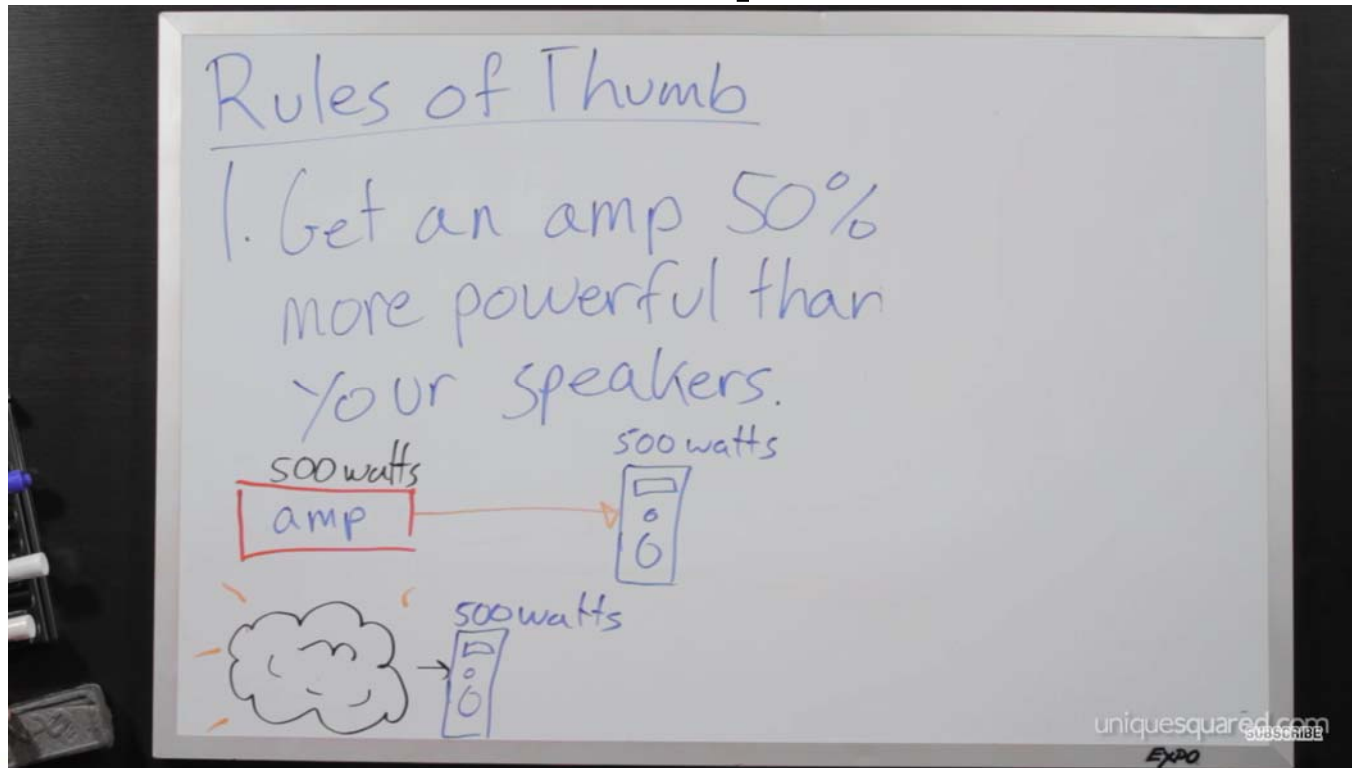 Rules of Thumb
1. Get an amp 50%
more powerful than
your speakers.
500 watts
500 watts
amp
500 watts
uniquesquared.com
SUBSCRIBE
EXPO